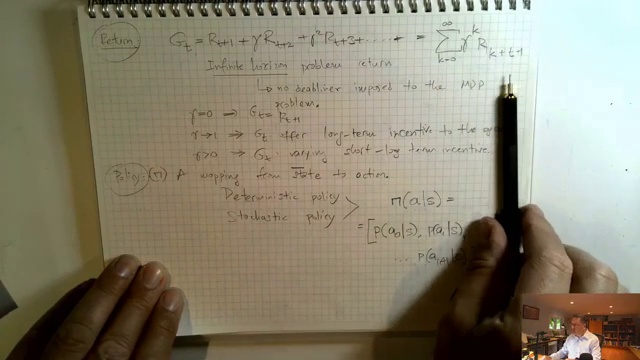 Return G_t = R_{t+1} + γ R_{t+2} + γ² R_{t+3} + ..... + = Σ_{k=0}^{∞} γ^k R_{k+t+1}
Infinite horizon problem return
↳ no deadline imposed to the MDP
problem.
γ=0 → G_t = R_{t+1}
γ→1 → G_t offer long-term incentive to the
γ>0 → G_t varying short-log term incentive.
Policy: (π) A mapping from state to action.
Deterministic policy
Stochastic policy
π(a|s) =
= [p(a_0|s), p(a_1|s)
... p(a_{|A|}|s)